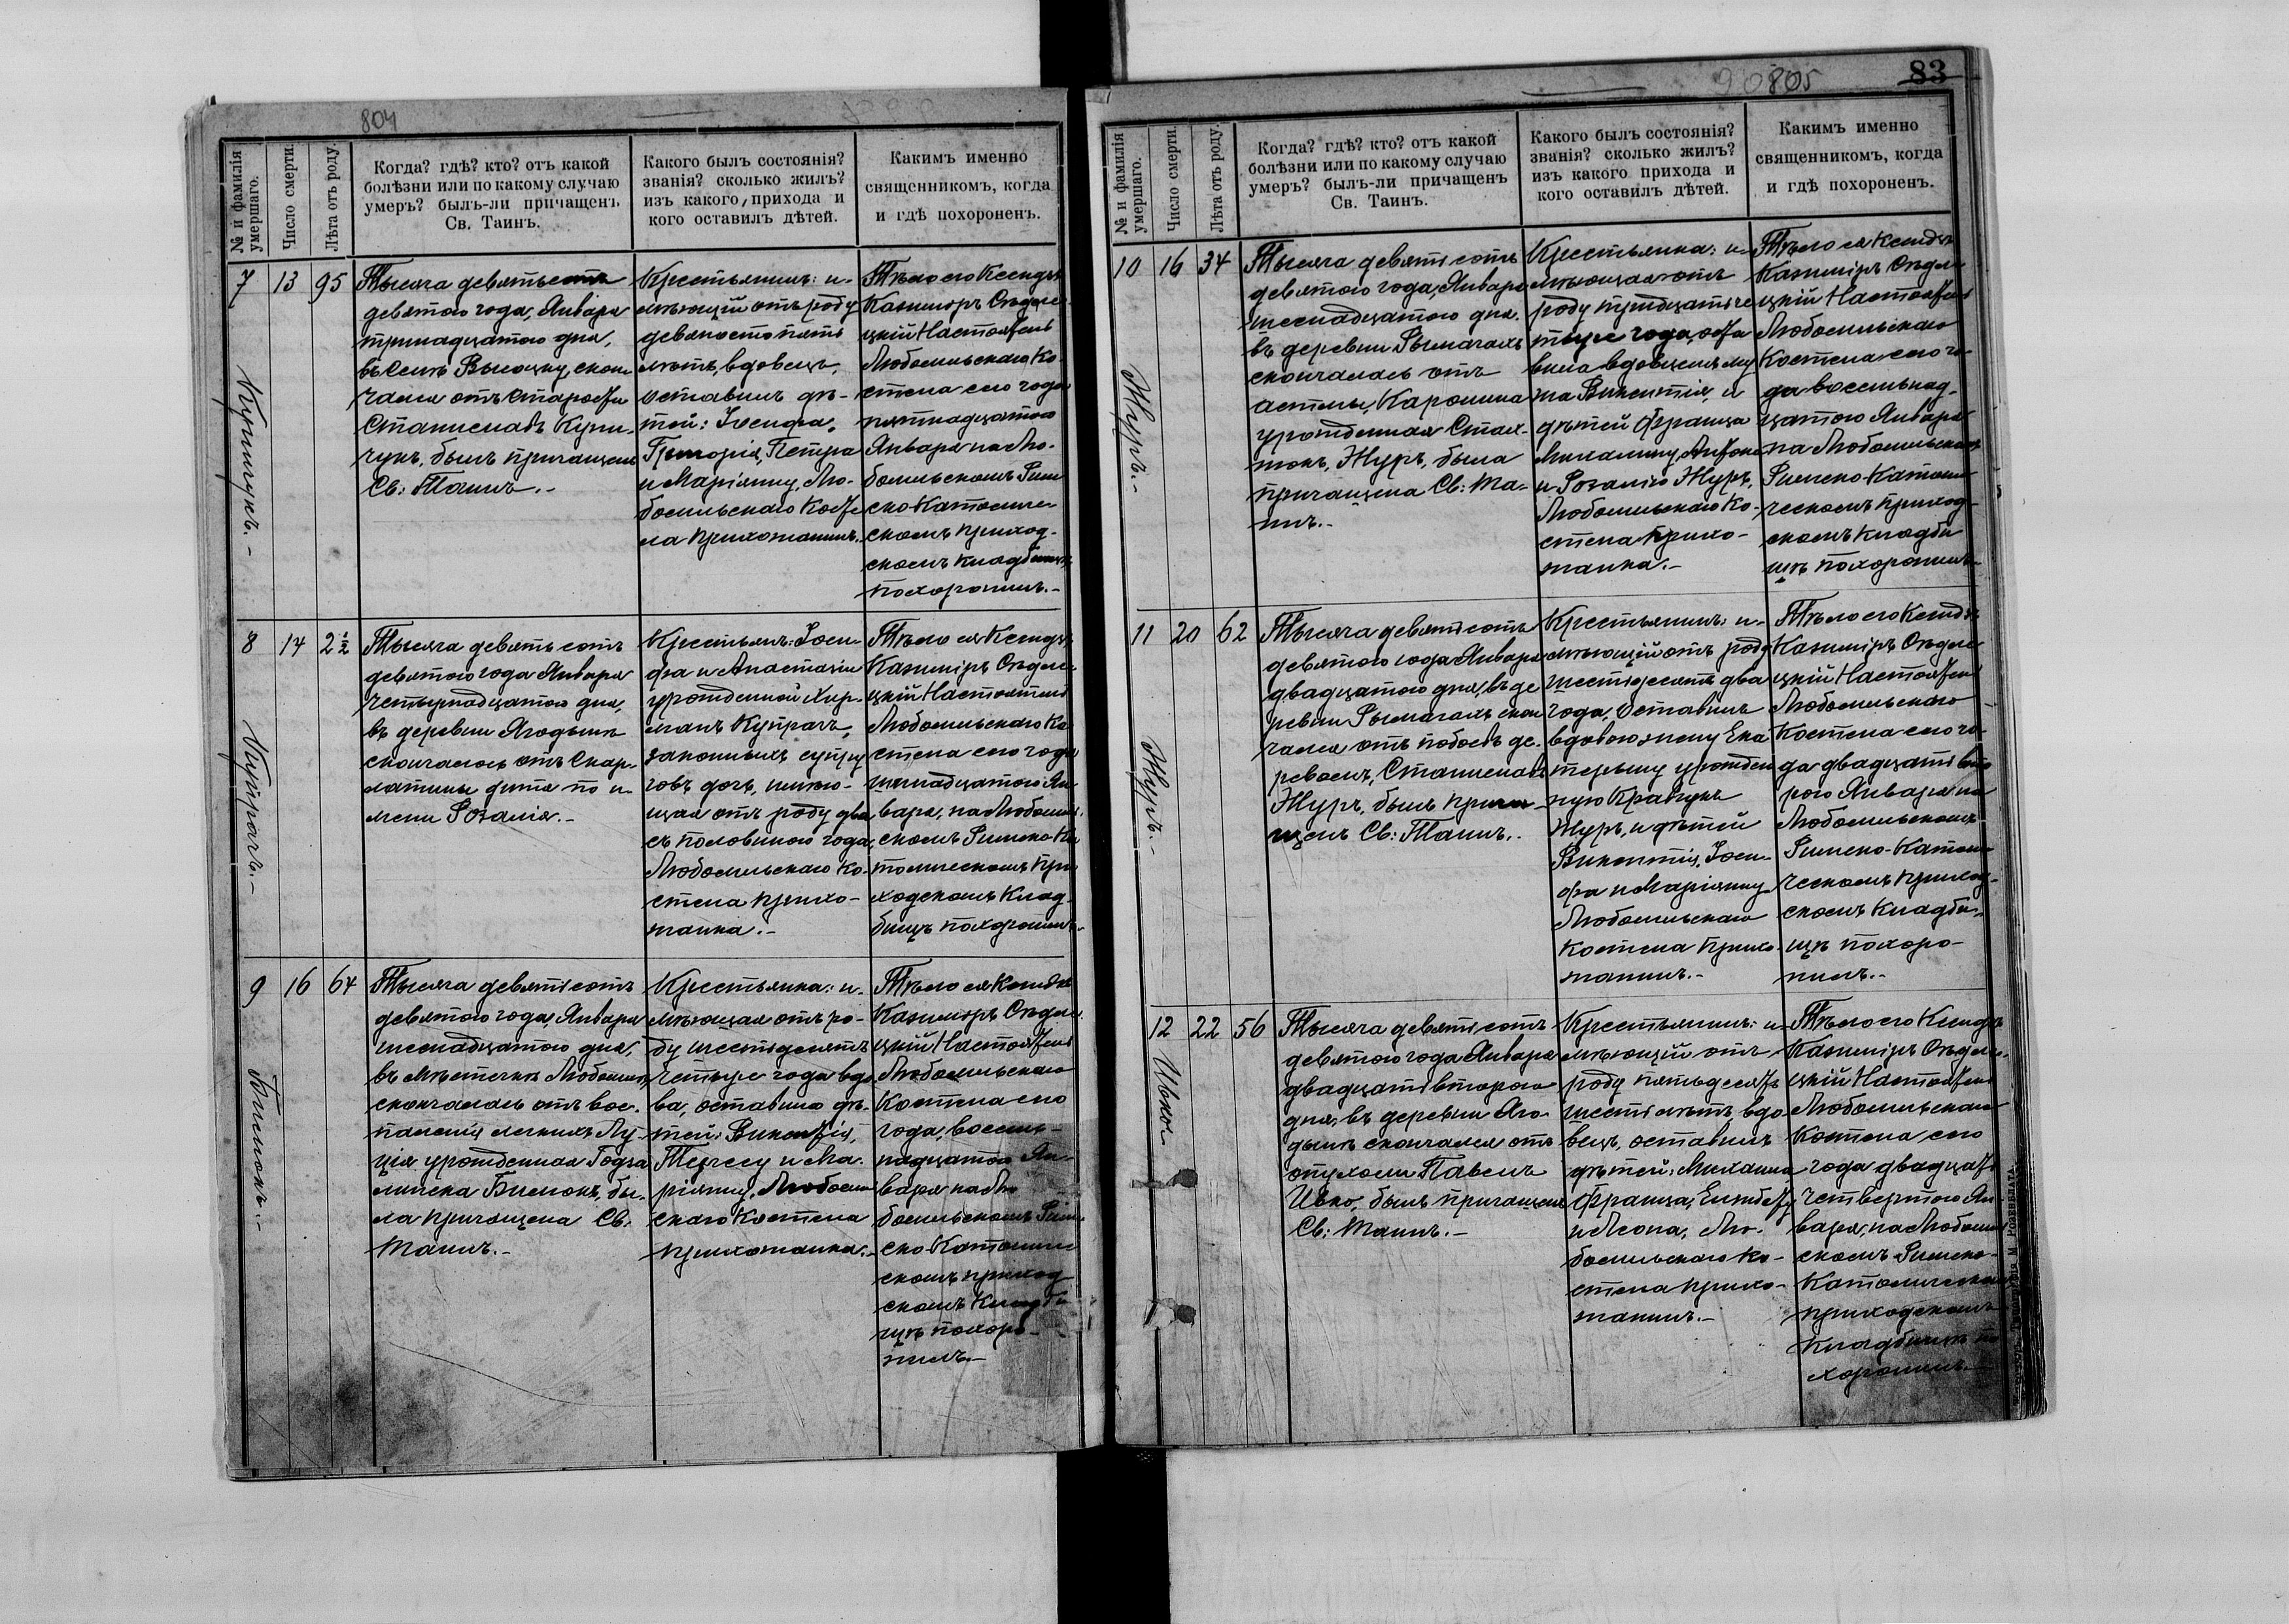 804
№ и фамилія
умершаго.
Число смерти.
Лѣта отъ роду.
Когда? гдѣ? кто? отъ какой
болѣзни или по какому случаю
умеръ? былъ-ли причащенъ
Св. Таинъ.
Какого былъ состоянія?
званія? сколько жилъ?
изъ какого прихода и
кого оставилъ дѣтей.
Какимъ именно
священникомъ, когда
и гдѣ похороненъ.
7
13
95
Тысяча девятьсотъ
девятого года, Января
тринадцатого дня,
въ селѣ Высоцку, скон
чался отъ старости
Станиславъ Купи-
чукъ, былъ причащенъ
Св: Таинъ.-
Крестьянинъ: и-
мѣющій отъ роду
девяносто пять
лѣтъ, вдовецъ,
оставилъ дѣ-
тей: Іосифа,
Григорія, Петра
и Маріянну, Лю-
бомльскаго Косте
ла прихожанинъ.
Тѣло его Ксендзъ
Казиміръ Сѣдле-
цкій Настоятель
Любомльскаго Ко-
стела сего года
пятнадцатого
Января на Лю-
бомльскомъ Рим
ско-Католиче
скомъ приход-
скомъ кладбищѣ
похоронилъ.-
8
14
2½
Купрачъ.-
Тысяча девять сотъ
девятого года Января
четырнадцатого дня,
въ деревни Ягодынѣ
скончалось отъ скар-
латины дитя по и-
мени Розалія.-
Крестьянъ: Іоси-
фа и Анастасіи
урожденной Хар-
манъ Купрачъ,
законныхъ супру
говъ дочь, имѣю-
щая отъ роду два
съ половиною года,
Любомльскаго Ко-
стела прихо-
жанка.-
Тѣло ея Ксендзъ
Казиміръ Сѣдле-
цкій Настоятель
Любомльскаго Ко
стела сего года
шестнадцатого Ян
варя, на Любомль-
скомъ Римско-Ка
толическомъ при
ходскомъ клад-
бищѣ похоронилъ.-
9
16
64
Бимокъ.-
Тысяча девятьсотъ
девятого года, Января
шестнадцатого дня,
въ мѣстечкѣ Любомлѣ,
скончалась отъ вос-
паленія легкихъ Лу-
ція урожденная Годза
линска Бимокъ, бы-
ла причащена Св.
Таинъ.-
Крестьянка: и-
мѣющая отъ ро-
ду шестьдесятъ
четыре года вдо
ва, оставила дѣ-
тей: Викентія,
Терессу и Ма-
ріянну, Любомль
скаго Костела
прихожанка.-
Тѣло ея Ксендзъ
Казиміръ Сѣдле-
цкій Настоятель
Любомльскаго
Костела сего
года, восем-
надцатого Ян-
варя на Лю
бомльскомъ Рим-
ско-Католиче
скомъ приход
скомъ кладби
щѣ похоро-
нилъ.-
805
83
№ и фамилія
умершаго.
Число смерти.
Лѣта отъ роду.
Когда? гдѣ? кто? отъ какой
болѣзни или по какому случаю
умеръ? былъ-ли причащенъ
Св. Таинъ.
Какого былъ состоянія?
званія? сколько жилъ?
изъ какого прихода и
кого оставилъ дѣтей.
Какимъ именно
священникомъ, когда
и гдѣ похороненъ.
10
16
34
Журъ.-
Тысяча девятьсотъ
девятого года, Января
шестнадцатого дня.
въ деревни Рымачахъ
скончалась отъ
астмы, Каролина
урожденная Стал-
мокъ, Журъ, была
причащена Св: Та-
инъ.-
Крестьянка: и-
мѣющая отъ
роду тридцать че
тыре года, оста
вила вдовцемъ му
жа Викентія, и
дѣтей Франца
Михалину, Антона
и Розалію Журъ,
Любомльскаго Ко-
стела прихо-
жанка.-
Тѣло ея Ксендзъ
Казиміръ Сѣдле
цкій Настоятель
Любомльскаго
Костела сего го-
да восемнад-
цатого Января
на Любомльскомъ
Римско-Католи
ческомъ приход-
скомъ кладби
щѣ похоронилъ.
11
20
62
Журъ.-
Тысяча девятьсотъ
девятого года Января
двадцатого дня, въ де
ревни Рымачахъ скон
чался отъ побоевъ де-
ревомъ, Станиславъ
Журъ, былъ прича-
щенъ Св: Таинъ.
Крестьянинъ: и-
мѣющій отъ роду
шестьдесятъ два
года, оставилъ
вдовою жену Ека
терыну урожден
ную Кравчукъ
Журъ, и дѣтей
Викентія, Іоси-
фа и Маріянну
Любомльскаго
Костела прихо-
жанинъ.-
Тѣло его Ксендзъ
Казиміръ Сѣдле
цкій Настоятель
Любомльскаго
Костела сего го-
да двадцать вто
рого Января на
Любомльскомъ
Римско-Католи
ческомъ приход-
скомъ кладби-
щѣ похоро-
нилъ.-
12
22
56
Ивко
Тысяча девятьсотъ
девятого года Января
двадцать второго
дня, въ деревни Яго-
дынѣ скончался отъ
опухоли Павелъ
Ивко, былъ причащенъ
Св: Таинъ.-
Крестьянинъ: и-
мѣющій отъ
роду пятьдесятъ
шесть лѣтъ вдо-
вецъ, оставилъ
дѣтей: Михаила
Франца, Елизбету
и Леона, Лю-
бомльскаго Ко-
стела прихо-
жанинъ.-
Тѣло его Ксендзъ
Казиміръ Сѣдле-
цкій Настоятель
Любомльскаго
Костела сего
года двадцать
четвертого Ян-
варя, на Любомль
скомъ Римско-
Католическомъ
приходскомъ
кладбищѣ по
хоронилъ.-